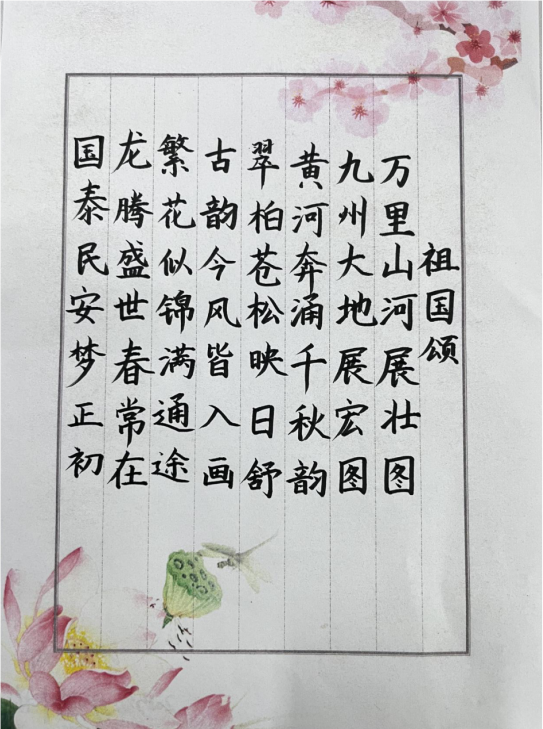 祖国颂
万里山河展壮图
九州大地展宏图
黄河奔涌千秋韵
翠柏苍松映日舒
古韵今风皆入画
繁花似锦满通途
龙腾盛世春常在
国泰民安梦正初